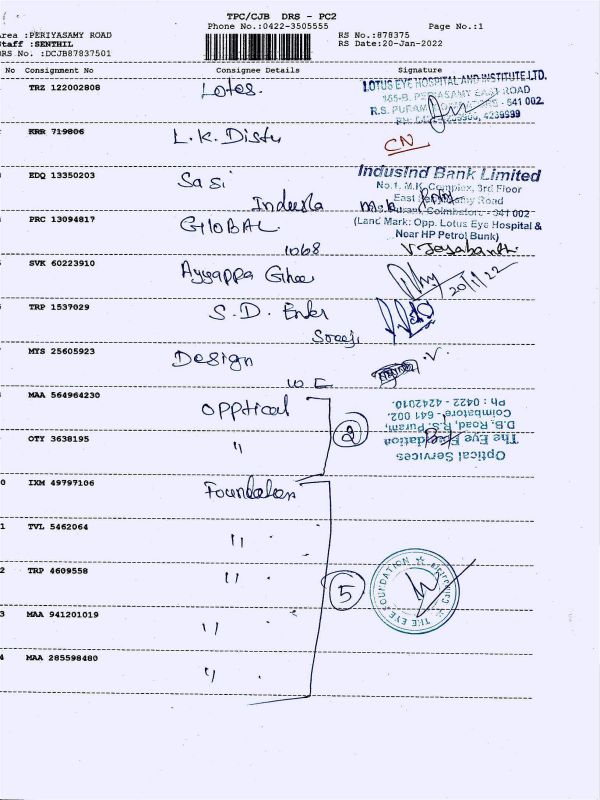 TPC/CJB DRS - PC2
Phone No.:0422-3505555 Page No.:1
Area :PERIYASAMY ROAD RS No.:878375
Staff :SENTHIL RS Date:20-Jan-2022
DRS No. :DCJB87837501
No Consignment No Consignee Details Signature
TRZ 122002808 Lotus.
LOTUS EYE HOSPITAL AND INSTITUTE LTD.
EAST ROAD
R.S. PURAM, - 641 002
4239999
KRR 719806 L.K. Distu CN
EDQ 13350203 Sasi
Indusind Bank Limited
No.1. M.K. Complex, 3rd Floor
East Road
Indusla
PRC 13094817 GlOBAL
Coimbatore - 641 002
(Land Mark: Opp. Lotus Eye Hospital &
Near HP Petrol Bunk)
1068
SVK 60223910 Ayyappa Ghee 20/1/22
TRP 1537029 S.D. Enter
MTS 25605923 Design V.
MAA 564964230 Opptical
2
OTY 3638195 "
Optical Services
The Eye Foundation
D.B. Road, R.S. Puram,
Coimbatore - 641 002.
Ph : 0422 - 4242010.
IXM 49797106 Foundation
TVL 5462064 "
TRP 4609558 "
5
THE EYE FOUNDATION
MAA 941201019 "
MAA 285598480 "